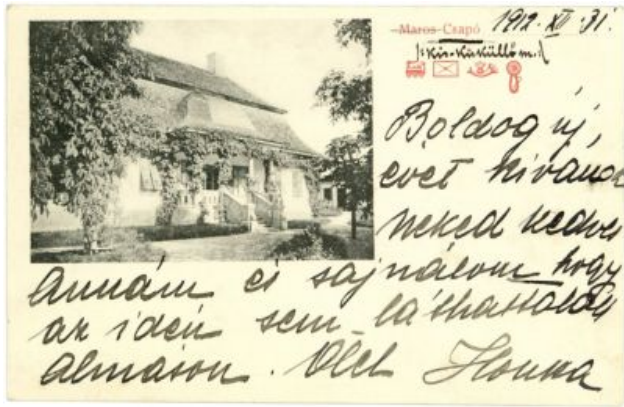 Maros-Csapó 1912. XII. 31.
(:Kis-Küküllő m.:)
Boldog új,
évet kívánok
neked kedves
Annám és sajnálom hogy
az idén sem láthattalak
Almáson. Ölel Ilonka